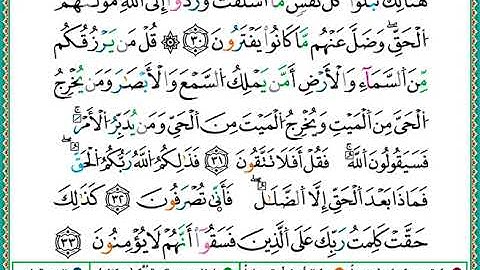 هُنَالِكَ تَبْلُوا۟ كُلُّ نَفْسٍ مَّآ أَسْلَفَتْ وَرُدُّوٓا۟ إِلَى ٱللَّهِ مَوْلَىٰهُمُ
ٱلْحَقِّ ۖ وَضَلَّ عَنْهُم مَّا كَانُوا۟ يَفْتَرُونَ ۝٣٠ قُلْ مَن يَرْزُقُكُم
مِّنَ ٱلسَّمَآءِ وَٱلْأَرْضِ أَمَّن يَمْلِكُ ٱلسَّمْعَ وَٱلْأَبْصَٰرَ وَمَن يُخْرِجُ
ٱلْحَىَّ مِنَ ٱلْمَيِّتِ وَيُخْرِجُ ٱلْمَيِّتَ مِنَ ٱلْحَىِّ وَمَن يُدَبِّرُ ٱلْأَمْرَ ۚ
فَسَيَقُولُونَ ٱللَّهُ ۚ فَقُلْ أَفَلَا تَتَّقُونَ ۝٣١ فَذَٰلِكُمُ ٱللَّهُ رَبُّكُمُ ٱلْحَقُّ ۖ
فَمَاذَا بَعْدَ ٱلْحَقِّ إِلَّا ٱلضَّلَٰلُ ۖ فَأَنَّىٰ تُصْرَفُونَ ۝٣٢ كَذَٰلِكَ
حَقَّتْ كَلِمَتُ رَبِّكَ عَلَى ٱلَّذِينَ فَسَقُوٓا۟ أَنَّهُمْ لَا يُؤْمِنُونَ ۝٣٣